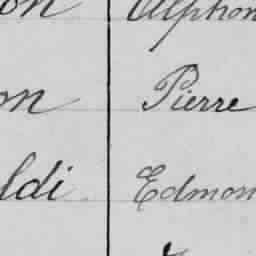 on Alphon
on Pierre
ldi Edmon